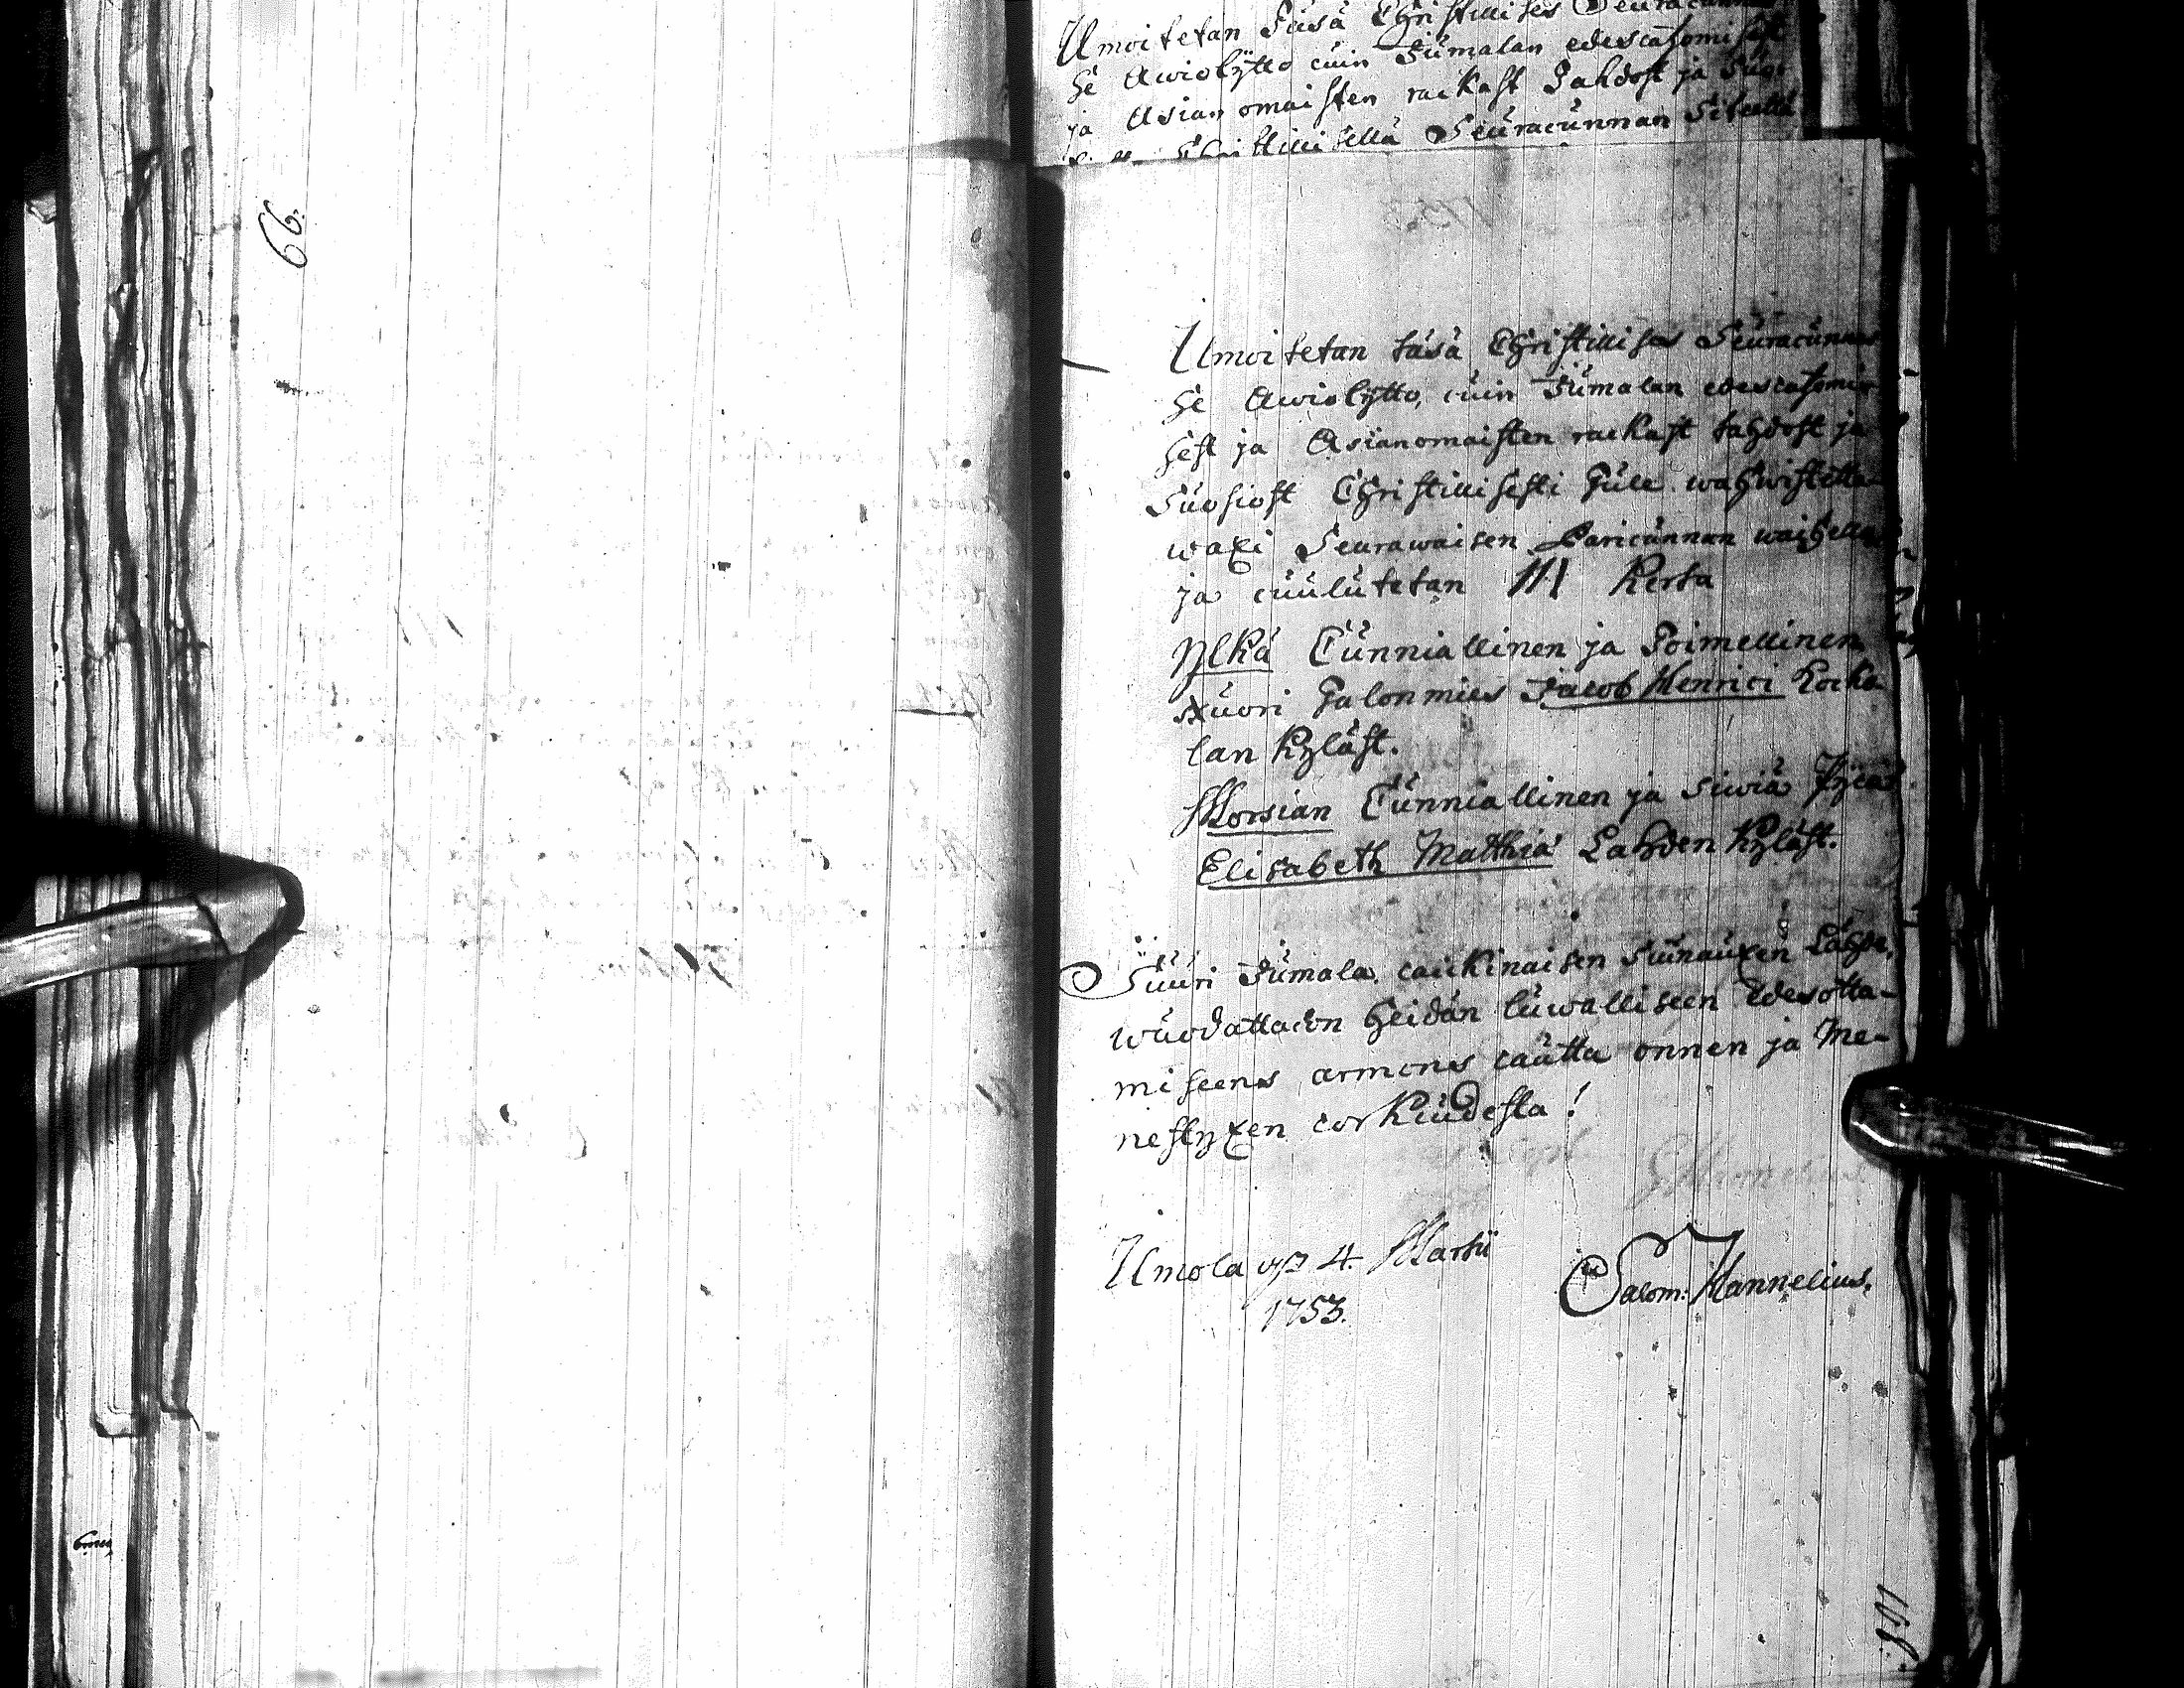 66.
Ilmoitetan Täsä Christillises Seuracunnas
Se Awiolijtto cuin Jumalan edescatzomisest
ja Asianomaisten raikast Tahdost ja Suo-
Christillisellä Seuracunnan Siteellä
Ilmoitetan täsä Christillises Seuracunnas
Se Awiolijtto, cuin Jumalan edescatzomi-
sest ja Asianomaisten raikast tahdost ja
Suosiost Christillisesti Tule wahwistetta-
waxi Seurawaisen Paricunnan waihella
ja cuulutetan III Kerta
Ylkä Cunniallinen ja Toimellinen
Nuori Talonmies Jacob Henrici
lan Kyläst.
Morsian Cunniallinen ja Siwiä Pijca
Elisabeth Matthiä Lahden Kyläst.
Suuri Jumala, caickinaisen Siunauxen Lähde,
wuodattacon Heidän luwalliseen Edesotta-
miseens armons cautta onnen ja Me-
nestyxen corkiudesta!
Ilmola 4. Martii
1753.
Salom: Hannelius.
101